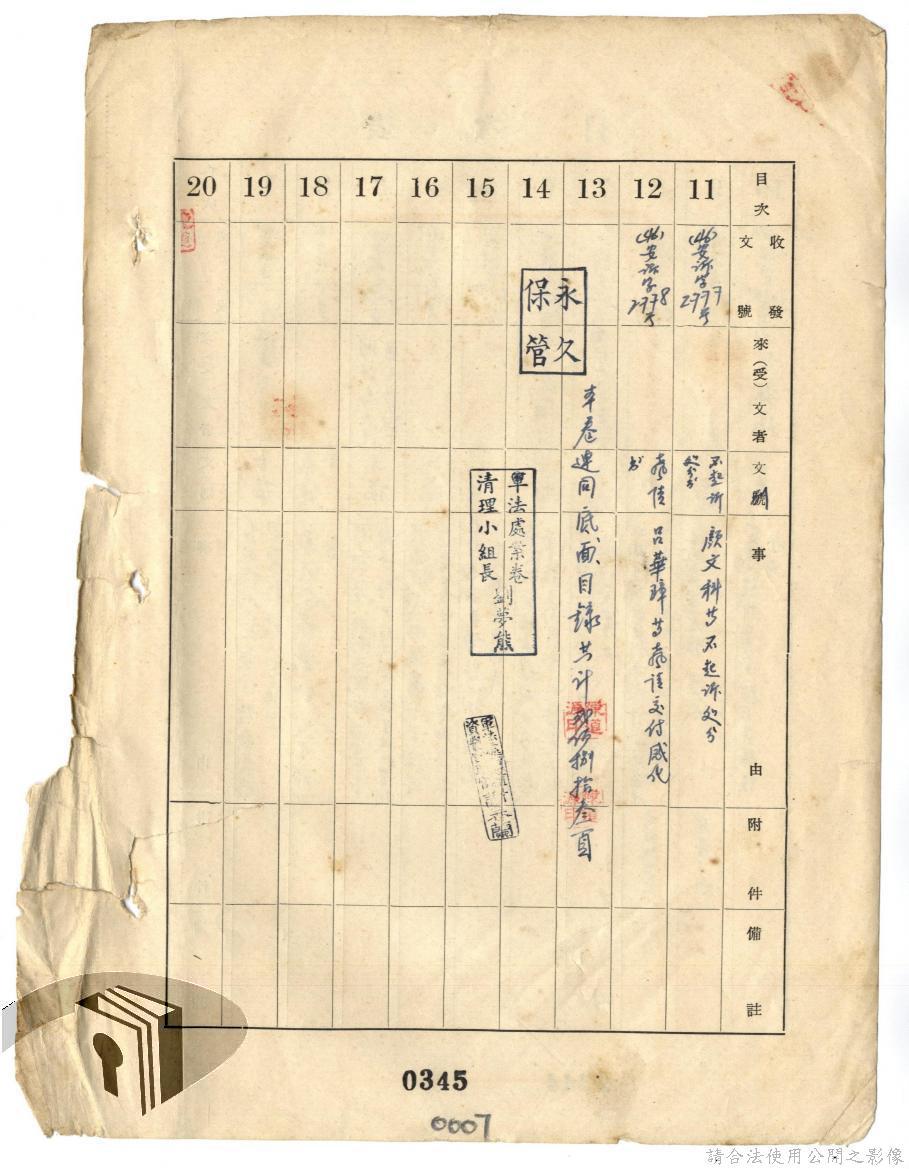 目次 11 12 13 14 15 16 17 18 19 20
收發文號
來(受)文者
文別
事由
附件
備註
(46)安訴字2777号
不起訴处分书
顏文科等不起訴处分
(46)安訴字2778号
呂華璋等
交付感化
本卷連同底面、目錄共計
捌拾叁頁
永久
保管
軍法處案卷
清理小組長劉夢熊
0345
0007
請合法使用公開之影像